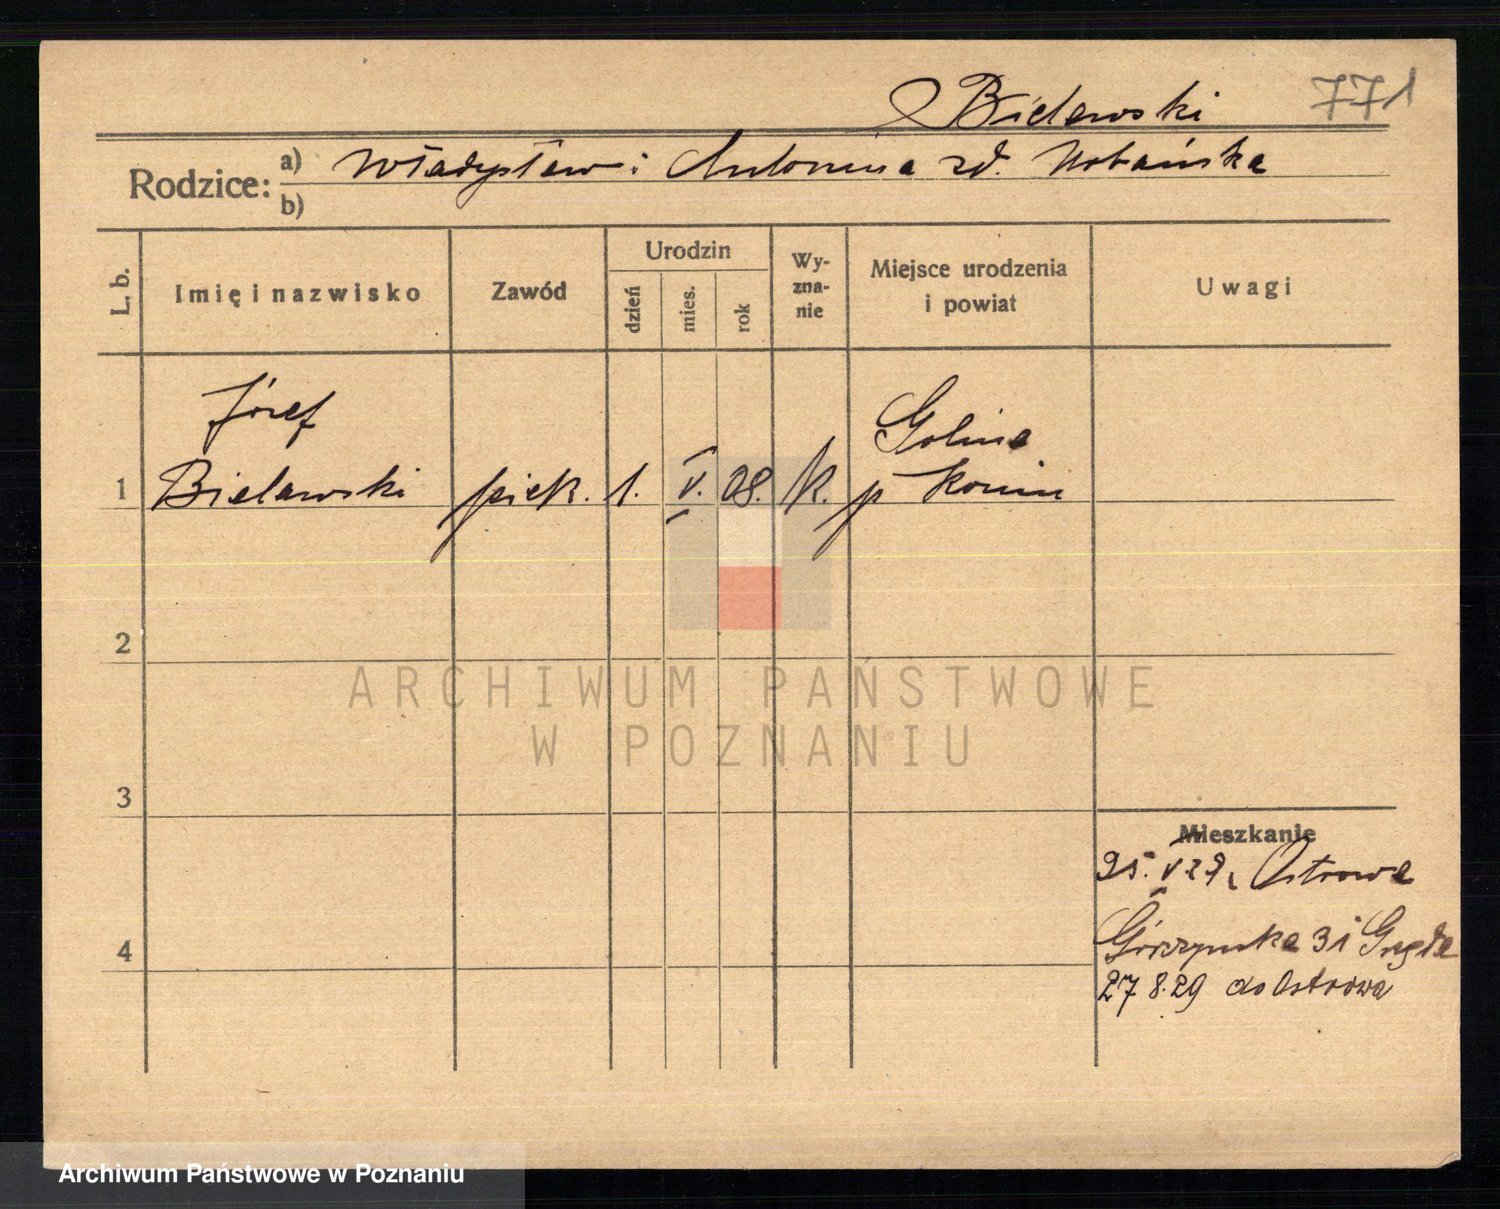 771
Bielawski
Rodzice: a) Władysław i Antonina zd. Urbańska
b)
L. b.
Imię i nazwisko
Zawód
Urodzin
dzień
mies.
rok
Wy-
zna-
nie
Miejsce urodzenia
i powiat
Uwagi
Józef
Golina
1 Bielawski piek. 1. V. 08. k. p Konin
2
ARCHIWUM PAŃSTWOWE
W POZNANIU
3
Mieszkanie
25. V 29 Ostrowa
4
31
27 8.29 do Ostrowa
Archiwum Państwowe w Poznaniu